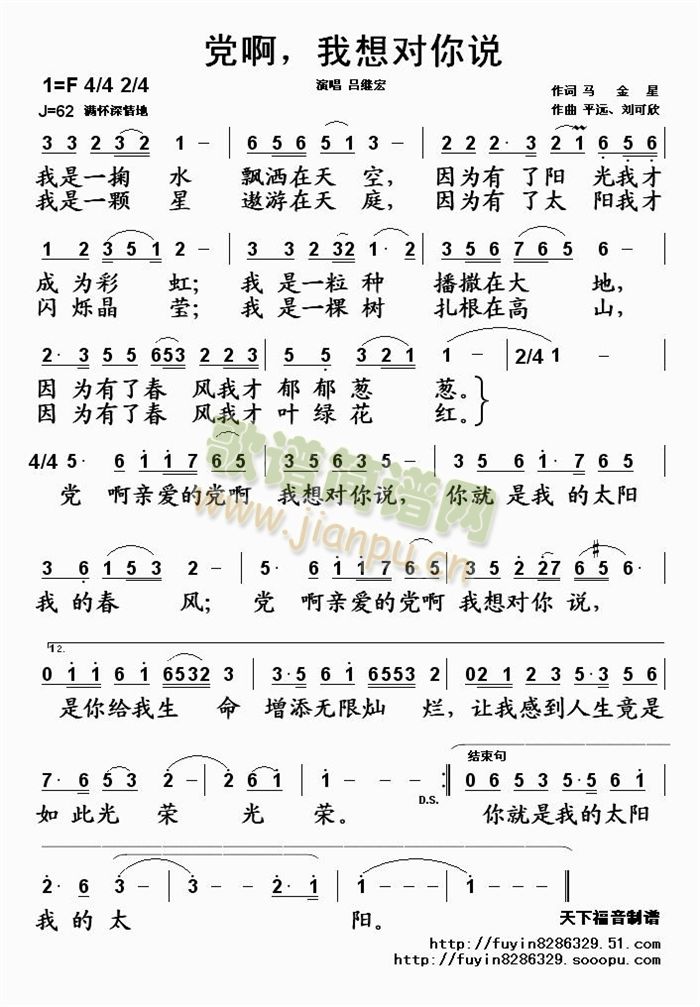 党啊，我想对你说
1=F 4/4 2/4
演唱 吕继宏
作词 马 金 星
J=62 满怀深情地
作曲 平远、刘可欣
3 3 2 3 2 1 - | 6 5 6 5 1 3 - | 2 2 2· 3 2 1 6 5 6 |
我是一掬 水 飘洒在天 空， 因为有 了阳 光我才
我是一颗 星 遨游在天 庭， 因为有 了太 阳我才
1 2 3 5 1 2 - | 3 3 2 3 2 1· 2 | 3 5 6 7 6 5 - |
成 为彩 虹； 我 是一粒 种 播撒在大 地，
闪 烁晶 莹； 我 是一棵 树 扎根在高 山，
2· 3 5 5 6 5 3 2 2 3 | 5 5 3 2 1 | 1 - | 2/4 1 - |
因 为有了春 风我才 郁 郁葱 葱。
因 为有了春 风我才 叶 绿花 红。
4/4 5· 6 1 1 7 6 5 | 3 5 6 3 5 - | 3 5 6 1· 7 6 5 |
党 啊亲爱的党啊 我想对你说， 你就 是我 的太阳
歌谱简谱网
www.jianpu.cn
3 6 1 5 3 2 - | 5· 6 1 1 7 6 5 | 3 5 2 2 7 6 #5 6· |
我 的春 风； 党 啊亲爱的党啊 我想对你 说，
12.
0 1 1 6 1 6 5 3 2 3 | 3· 5 6 1 6 5 5 3 2 | 0 2 1 2 3 5· 5 5 3 |
是你给我生 命 增添无限灿 烂， 让我感到人生竟是
结束句
7· 6 5 3 2 - | 2 6 1 | 1 - - - :| 0 6 5 3 5· 5 6 1 |
D.S.
如 此光 荣 光 荣。 你就是我的太阳
2· 6 3 - | 3 - 2· 1 | 1 - - - ||
我 的 太 阳。
天下福音制谱
http://fuyin8286329.51.com
http://fuyin8286329.sooopu.com